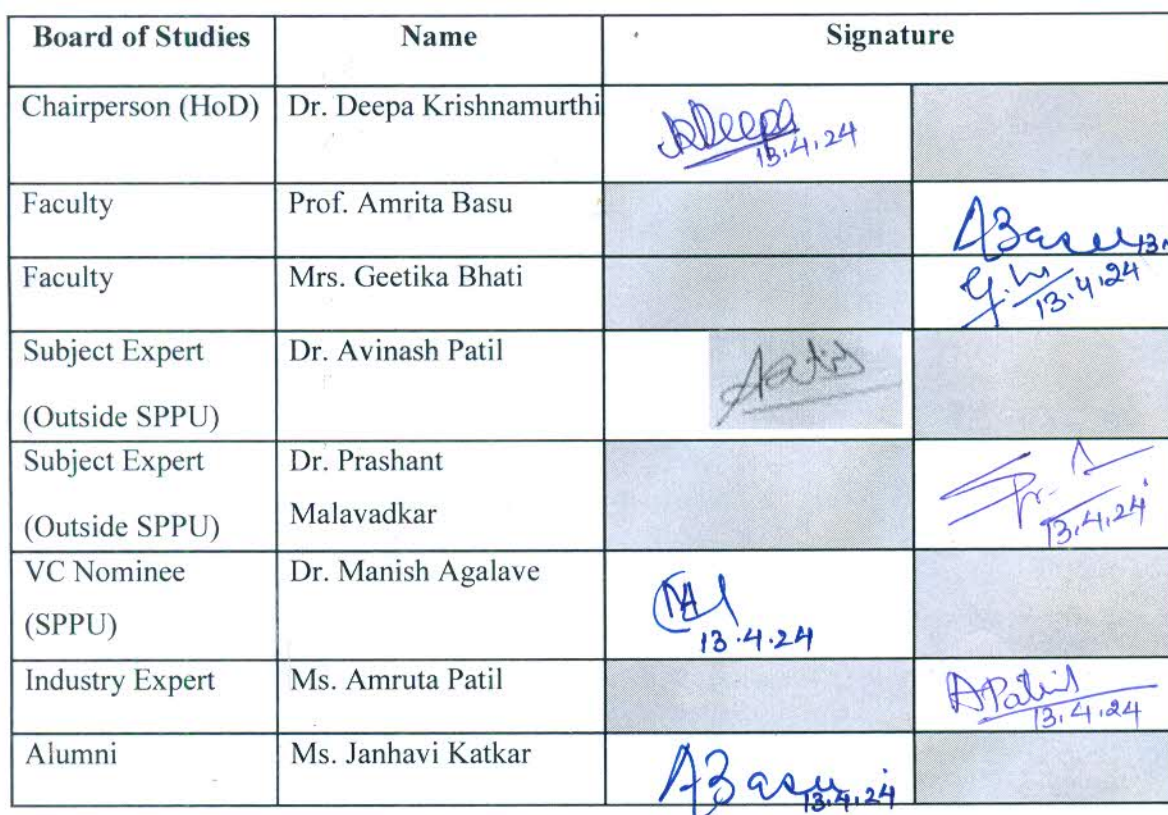 Board of Studies Name Signature
Chairperson (HoD) Dr. Deepa Krishnamurthi Deepa
13.4.24
Faculty Prof. Amrita Basu ABasu 13.
Faculty Mrs. Geetika Bhati
13.4.24
Subject Expert Dr. Avinash Patil
(Outside SPPU)
Subject Expert Dr. Prashant
(Outside SPPU) Malavadkar
13.4.24
VC Nominee Dr. Manish Agalave
(SPPU)
13.4.24
Industry Expert Ms. Amruta Patil APatil
13.4.24
Alumni Ms. Janhavi Katkar ABasu
13.4.24